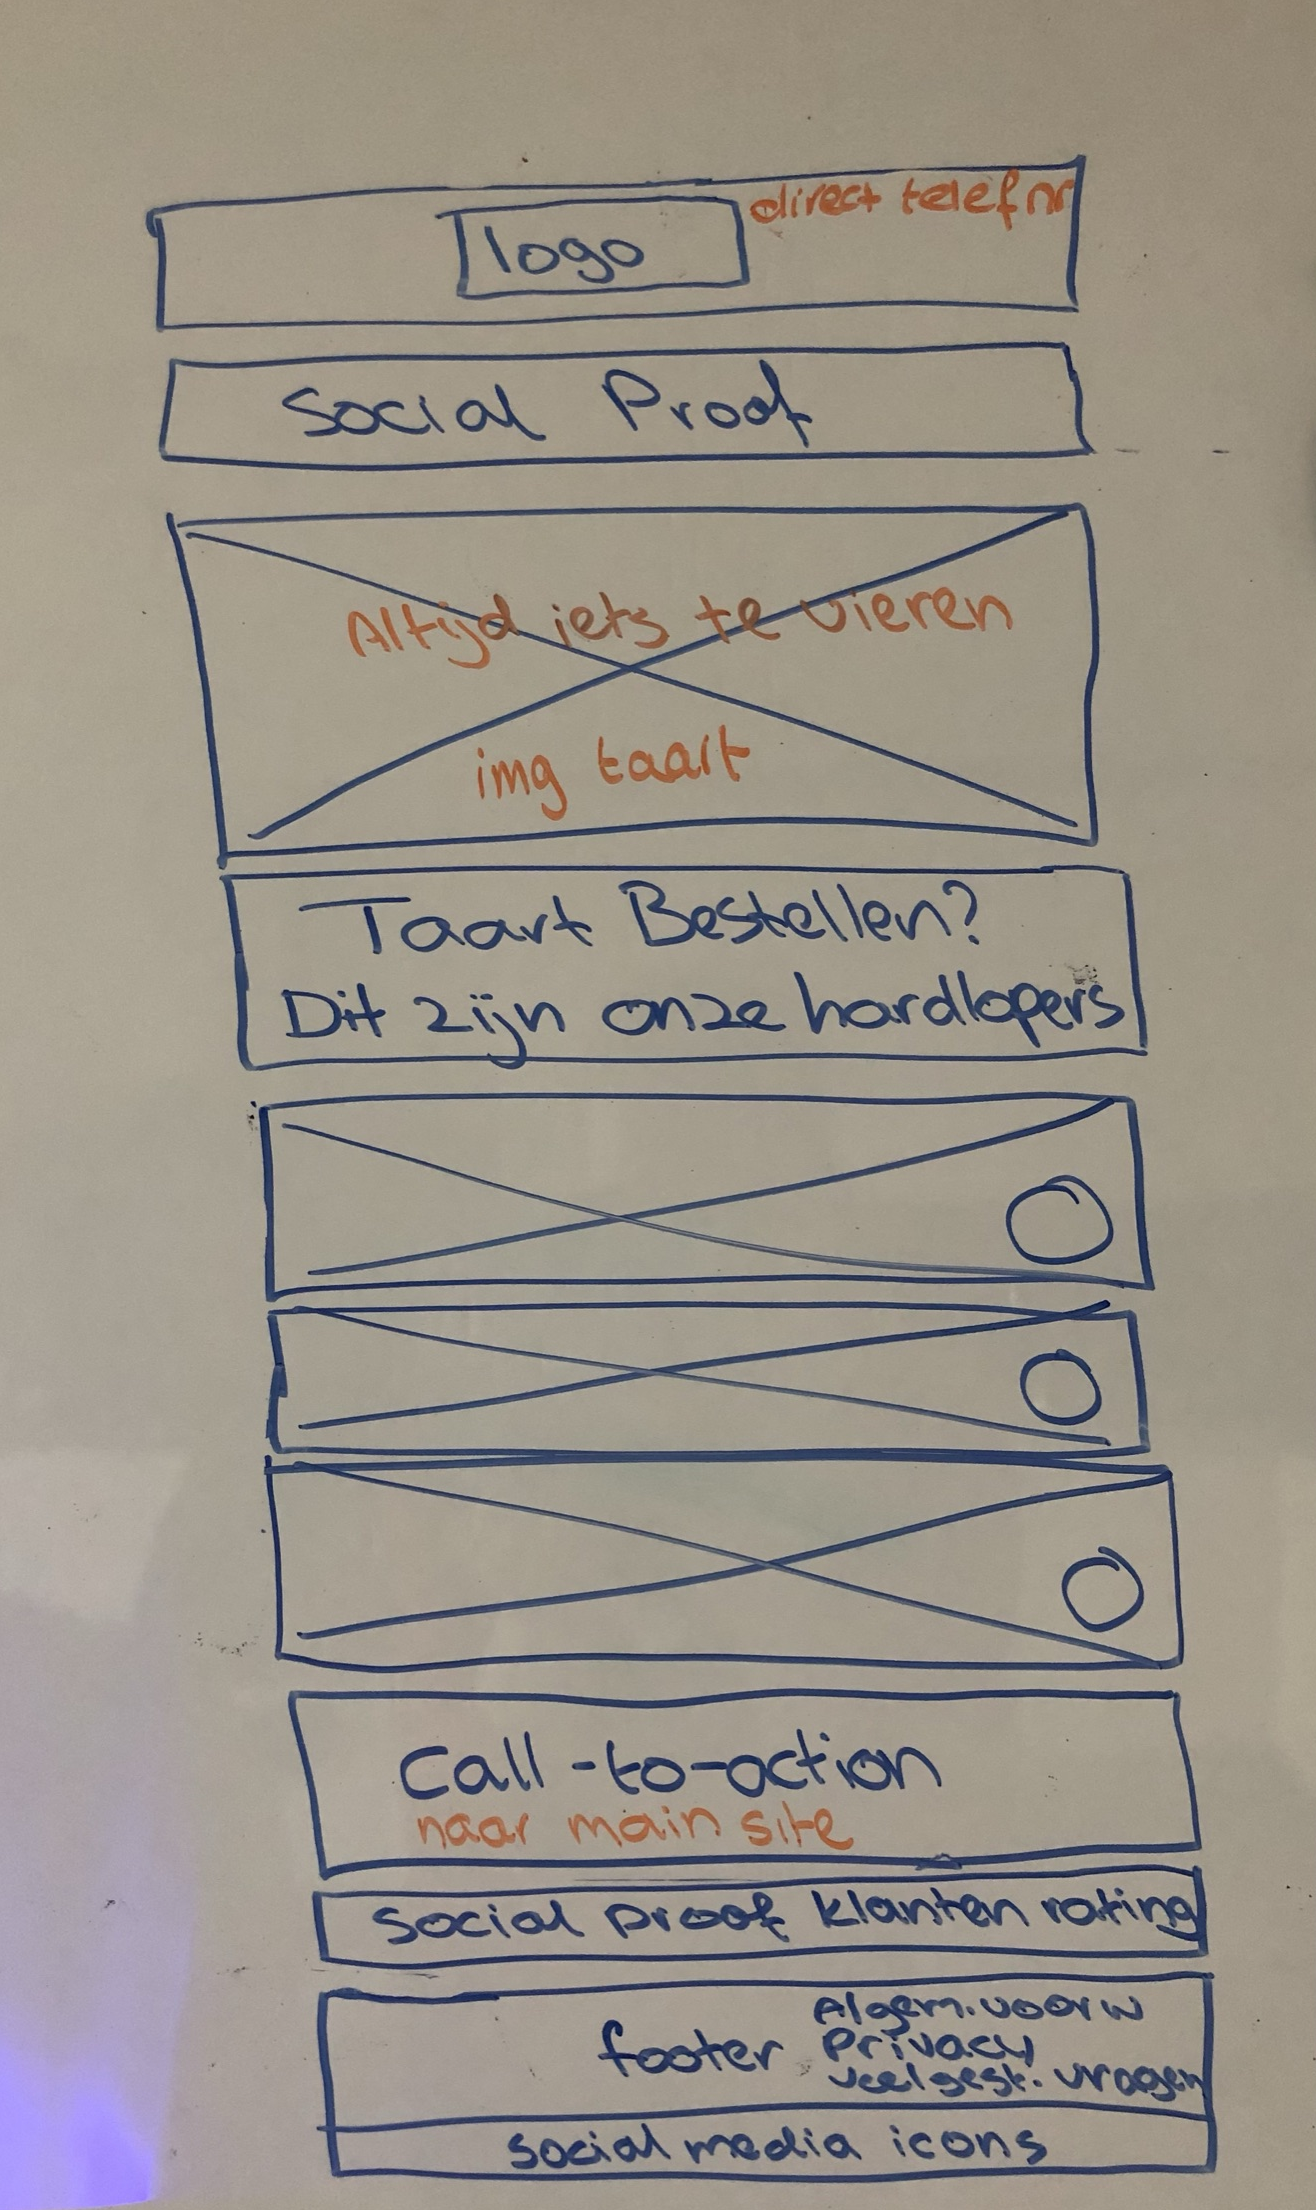 logo
direct telef nr
Social Proof
Altijd iets te vieren
img taart
Taart Bestellen?
Dit zijn onze hardlopers
Call-to-action
naar main site
social proof klanten rating
footer
Algem. voorw
Privacy
veelgest. vragen
social media icons